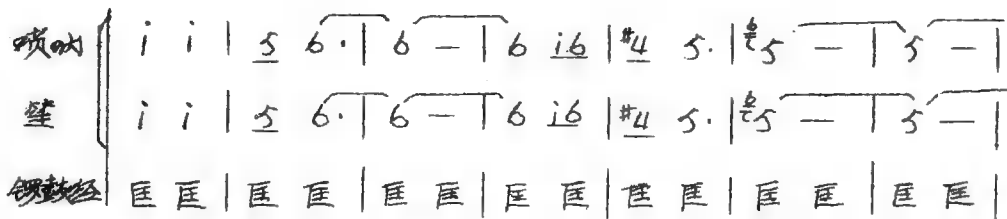 唢呐 i i | 5 6· | 6 — | 6 i6 | #4 5· | 6 5 — | 5 — |
笙 i i | 5 6· | 6 — | 6 i6 | #4 5· | 6 5 — | 5 — |
锣鼓经 匡 匡 | 匡 匡 | 匡 匡 | 匡 匡 | 匡 匡 | 匡 匡 | 匡 匡 |